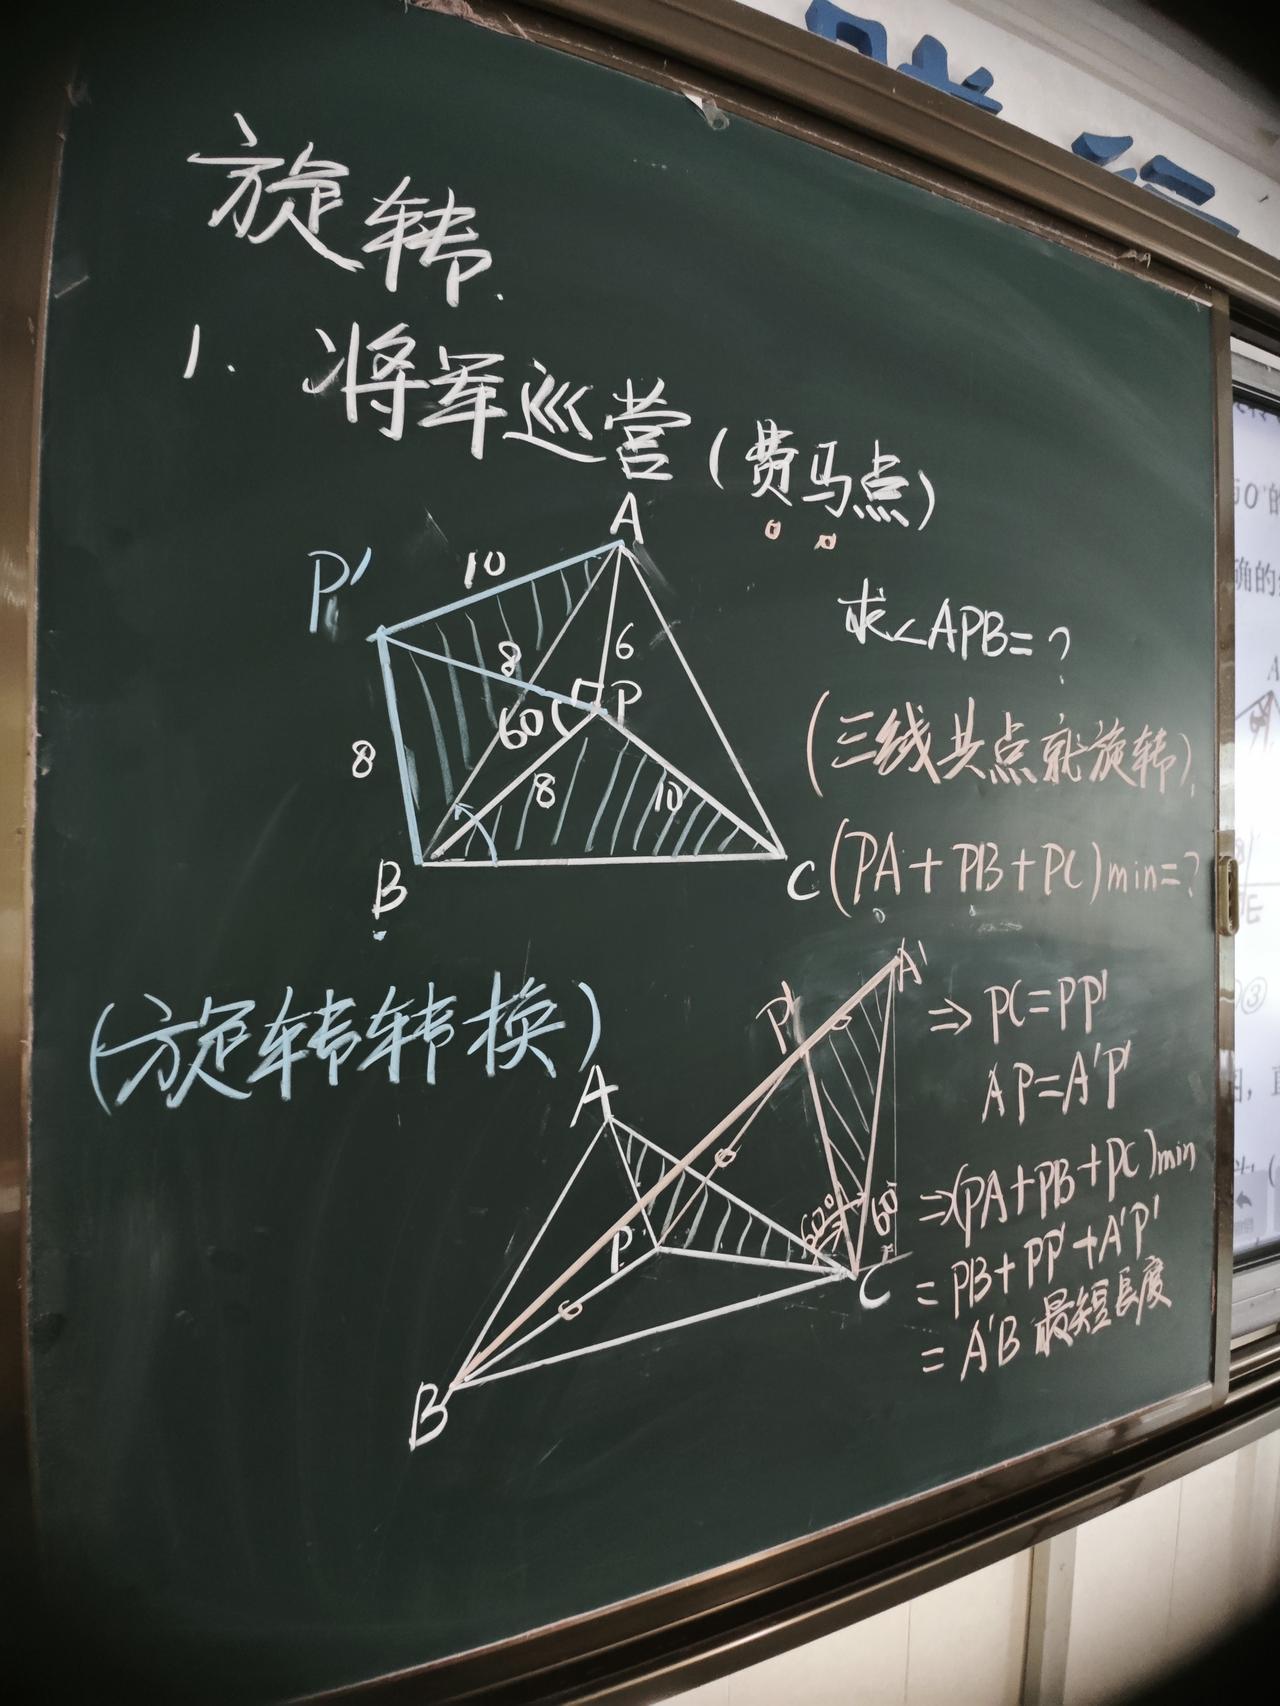 旋转.
1. 将军巡营(费马点)
A
P'
10
求∠APB=?
8
6
P
60
8
8
10
(三线共点就旋转).
B
C
(PA+PB+PC)min=?
(旋转转换)
A'
P'
⇒ PC=PP'
AP=A'P'
A
⇒(PA+PB+PC)min
60°
60°
P
C
=PB+PP'+A'P'
=A'B 最短長度
B
O'的
确的
A
③